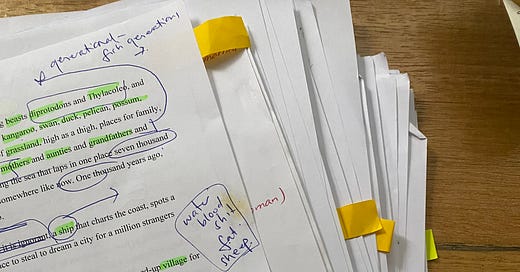 generational -
first generation
beasts diprotodons and Thylacoleo, and
kangaroo, swan, duck, pelican, possum,
f grassland, high as a thigh, places for family,
mothers and aunties and grandfathers and
ng the sea that laps in one place seven thousand
somewhere like now. One thousand years ago,
it is ignorant, a ship that charts the coast, spots a
ce to steal to dream a city for a million strangers
ed-up village for
water
blood
shit
fat
sheep
man)